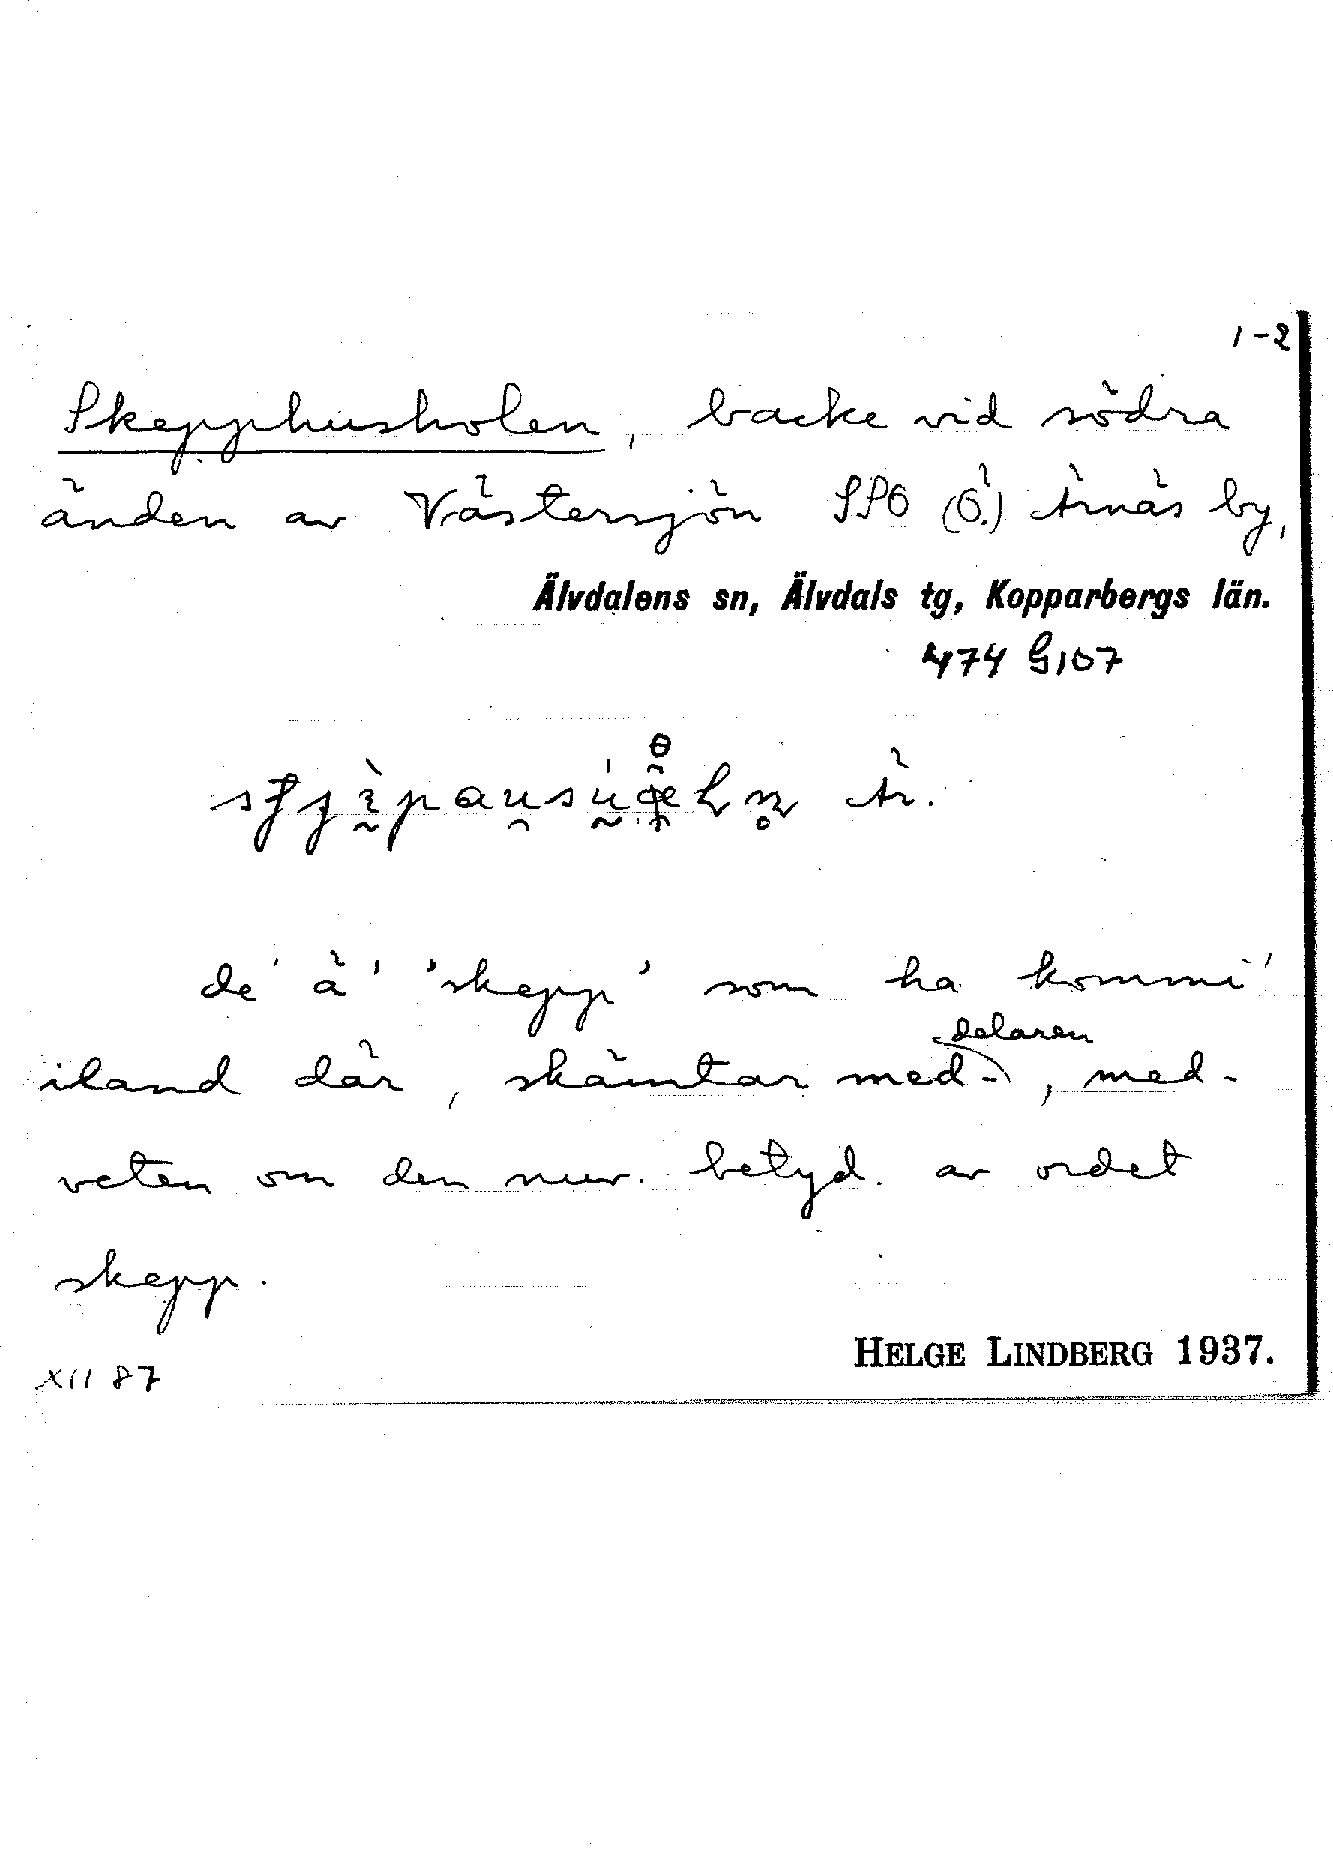 1-2
Skepphusholen, backe vid södra
änden av Västersjön SSO (Ö.) Årnäs by,
Älvdalens sn, Älvdals tg, Kopparbergs län.
474 G107
Är.
de' ä' 'skepp' som ha kommi'
iland där, skämtar med-delaren, med-
veten om den nuv. betyd. av ordet
skepp.
HELGE LINDBERG 1937.
XII 87